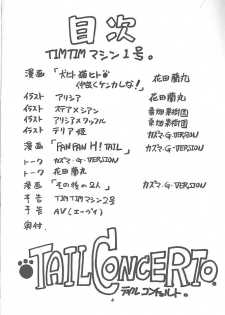 目次
TIMTIMマシン1号。
漫画「犬ヒト猫ヒト
仲良くケンカしな!」 花田蘭丸
イラスト アリシア 花田蘭丸
イラスト ステア×シアン
イラスト アリシア×ワッフル
イラスト テリア姫 カズマ・G・VERSION
漫画「FAN FAN H! TAIL」
トーク カズマ・G・VERSION
トーク 花田蘭丸
漫画「その後の2人」 カズマ・G・VERSION
予告 TIMTIMマシン2号
予告 AV(エーヴイ)
奥付.
TAIL CONCERTO.
テイルコンチェルト.